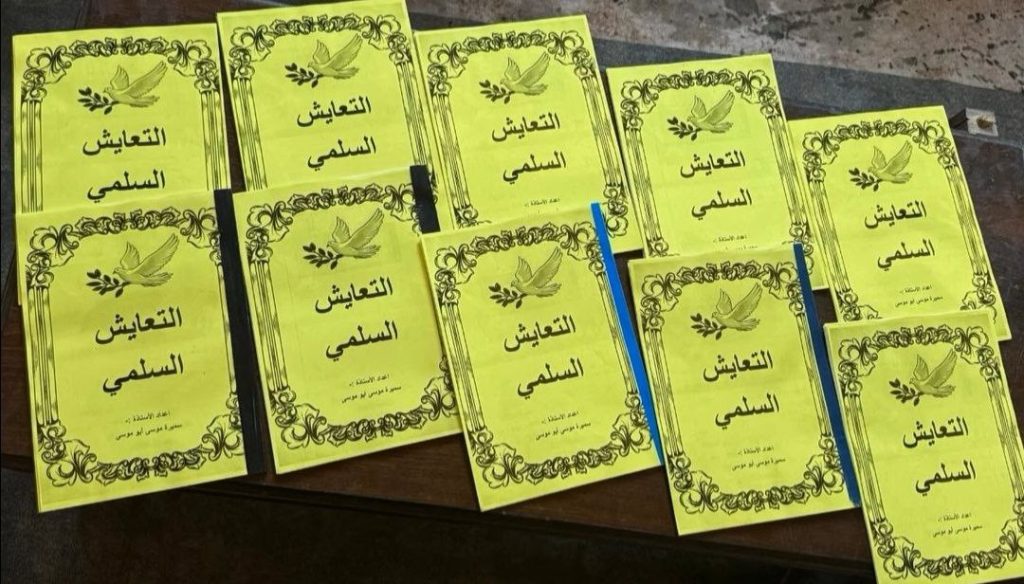 التعايش
السلمي
التعايش
السلمي
التعايش
السلمي
التعايش
السلمي
اعداد الأستاذة :-
التعايش
السلمي
اعداد الأستاذة :-
سميرة موسى ابو موسى
التعايش
السلمي
اعداد الأستاذة :-
سميرة موسى ابو موسى
التعايش
السلمي
اعداد الأستاذة :-
سميرة موسى ابو موسى
التعايش
السلمي
اعداد الأستاذة :-
سميرة موسى ابو موسى
التعايش
السلمي
اعداد الأستاذة :-
سميرة موسى ابو موسى
التعايش
السلمي
اعداد الأستاذة :-
سميرة موسى ابو موسى